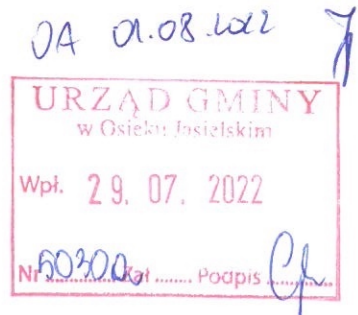 OA 01.08.2022
URZĄD GMINY
w Osieku Jasielskim
Wpł. 29. 07. 2022
Nr 50300 Zał ....... Podpis .......